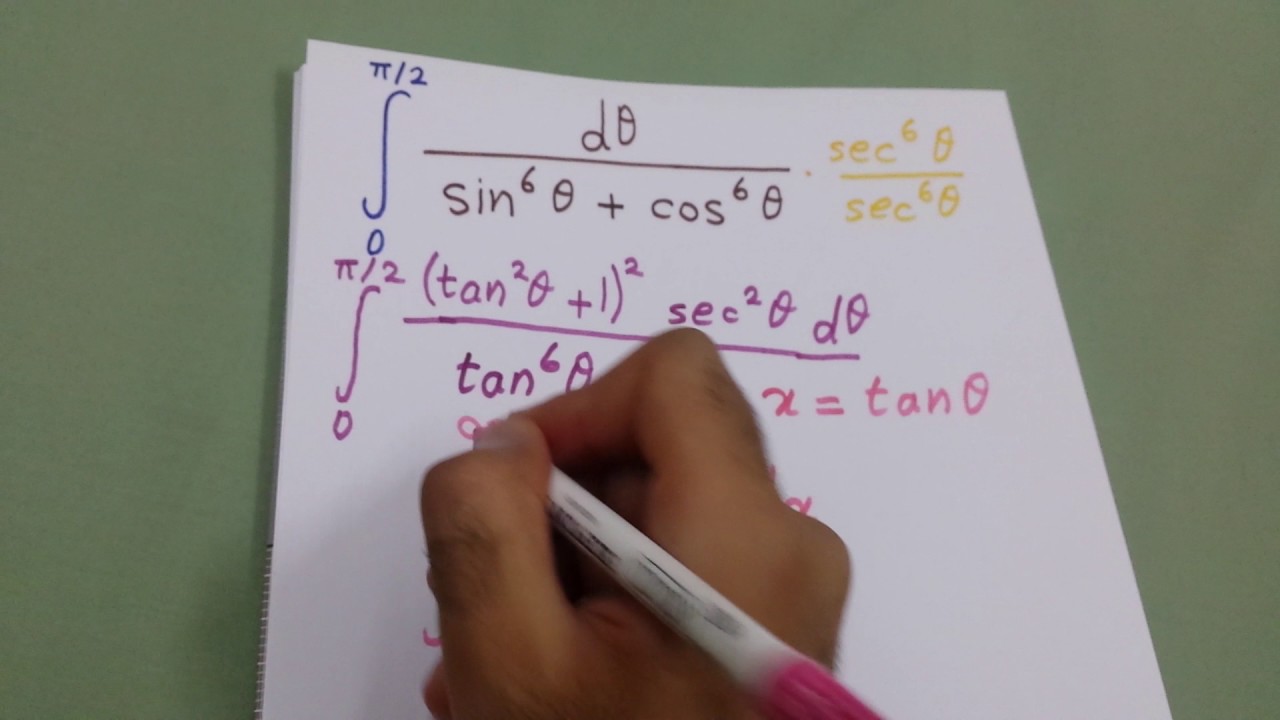 π/2
∫ dθ / (sin⁶ θ + cos⁶ θ) · sec⁶ θ / sec⁶ θ
0
π/2
∫ (tan²θ + 1)² sec²θ dθ / tan⁶ θ
0
x = tan θ